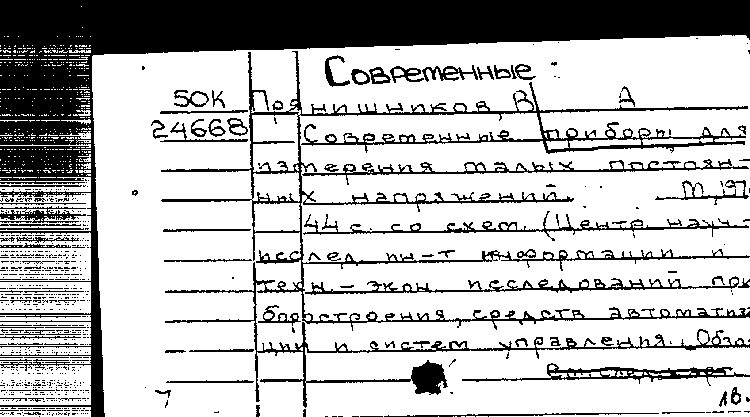 Современные :
50К Прянишников, В А
24668 Современные приборы для
измерения малых постоян-
ных напряжений. М, 197
44 с. со схем. (Центр науч.-
исслед ин-т информации и
техн.-экон исследований при
боростроения, средств автоматиза
ции и систем управления. Обзо
См след карт
7 1в